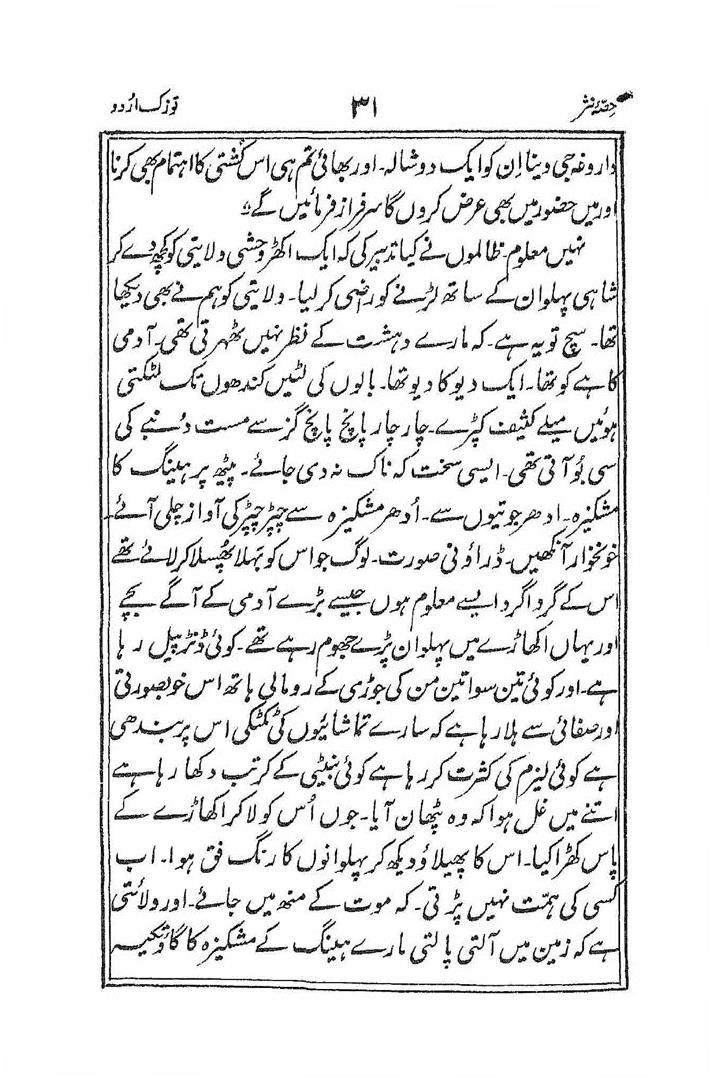 حصۂ نثر ۳۱ توزک اردو
داروغہ جی دینا اِن کو ایک دوشالہ۔ اور بھائی تم ہی اس کُشتی کا اہتمام بھی کرنا
اور میں حضور میں بھی عرض کروں گا سرفراز فرمائیں گے"
نہیں معلوم ظالموں نے کیا تدبیر کی کہ ایک اکھڑ وحشی ولایتی کو کچھ دے کر
شاہی پہلوان کے ساتھ لڑنے کو راضی کر لیا۔ ولایتی کو ہم نے بھی دیکھا
تھا۔ سچ تو یہ ہے۔ کہ مارے دہشت کے نظر نہیں ٹھہرتی تھی۔ آدمی
کاہے کو تھا۔ ایک دیو کا دیو تھا۔ بالوں کی لٹیں کندھوں تک لٹکتی
ہوئیں میلے کثیف کپڑے۔ چار چار پانچ پانچ گز سے مست دُنبے کی
سی بُو آتی تھی۔ ایسی سخت کہ ناک نہ دی جائے۔ پٹھ پر ہینگ کا
مشکیزہ۔ ادھر جوتیوں سے۔ اُدھر مشکیزہ سے چپڑ چپڑ کی آواز چلی آئے۔
خونخوار آنکھیں۔ ڈراؤنی صورت۔ لوگ جو اس کو بہلا پھُسلا کر لائے تھے
اس کے گرد اگرد ایسے معلوم ہوں جیسے بڑے آدمی کے آگے بچے
اور یہاں اکھاڑے میں پہلوان پڑے جھوم رہے تھے۔ کوئی ڈنڑ پیل رہا
ہے۔ اور کوئی تین سوا تین من کی جوڑی کے رومالی ہاتھ اس خوبصورتی
اور صفائی سے ہلا رہا ہے کہ سارے تماشائیوں کی ٹکٹکی اس پر بندھی
ہے کوئی لیزم کی کثرت کر رہا ہے کوئی بنیٹی کے کرتب دکھا رہا ہے
اتنے میں غل ہوا کہ وہ پٹھان آیا۔ جوں اُس کو لا کر اکھاڑے کے
پاس کھڑا کیا۔ اس کا پھیلاؤ دیکھ کر پہلوانوں کا رنگ فق ہوا۔ اب
کسی کی ہمّت نہیں پڑتی۔ کہ موت کے منھ میں جائے۔ اور ولائتی
ہے کہ زمین میں آلتی پالتی مارے ہینگ کے مشکیزہ کا گاؤ تکیہ